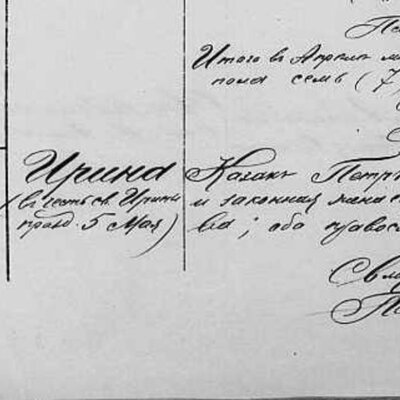 Итого въ Апрѣлѣ
пола семь (7)
Ирина
(въ честь св. Ирины
празд. 5 Мая)
Казакъ Петръ
и законная жена
ва; оба правос